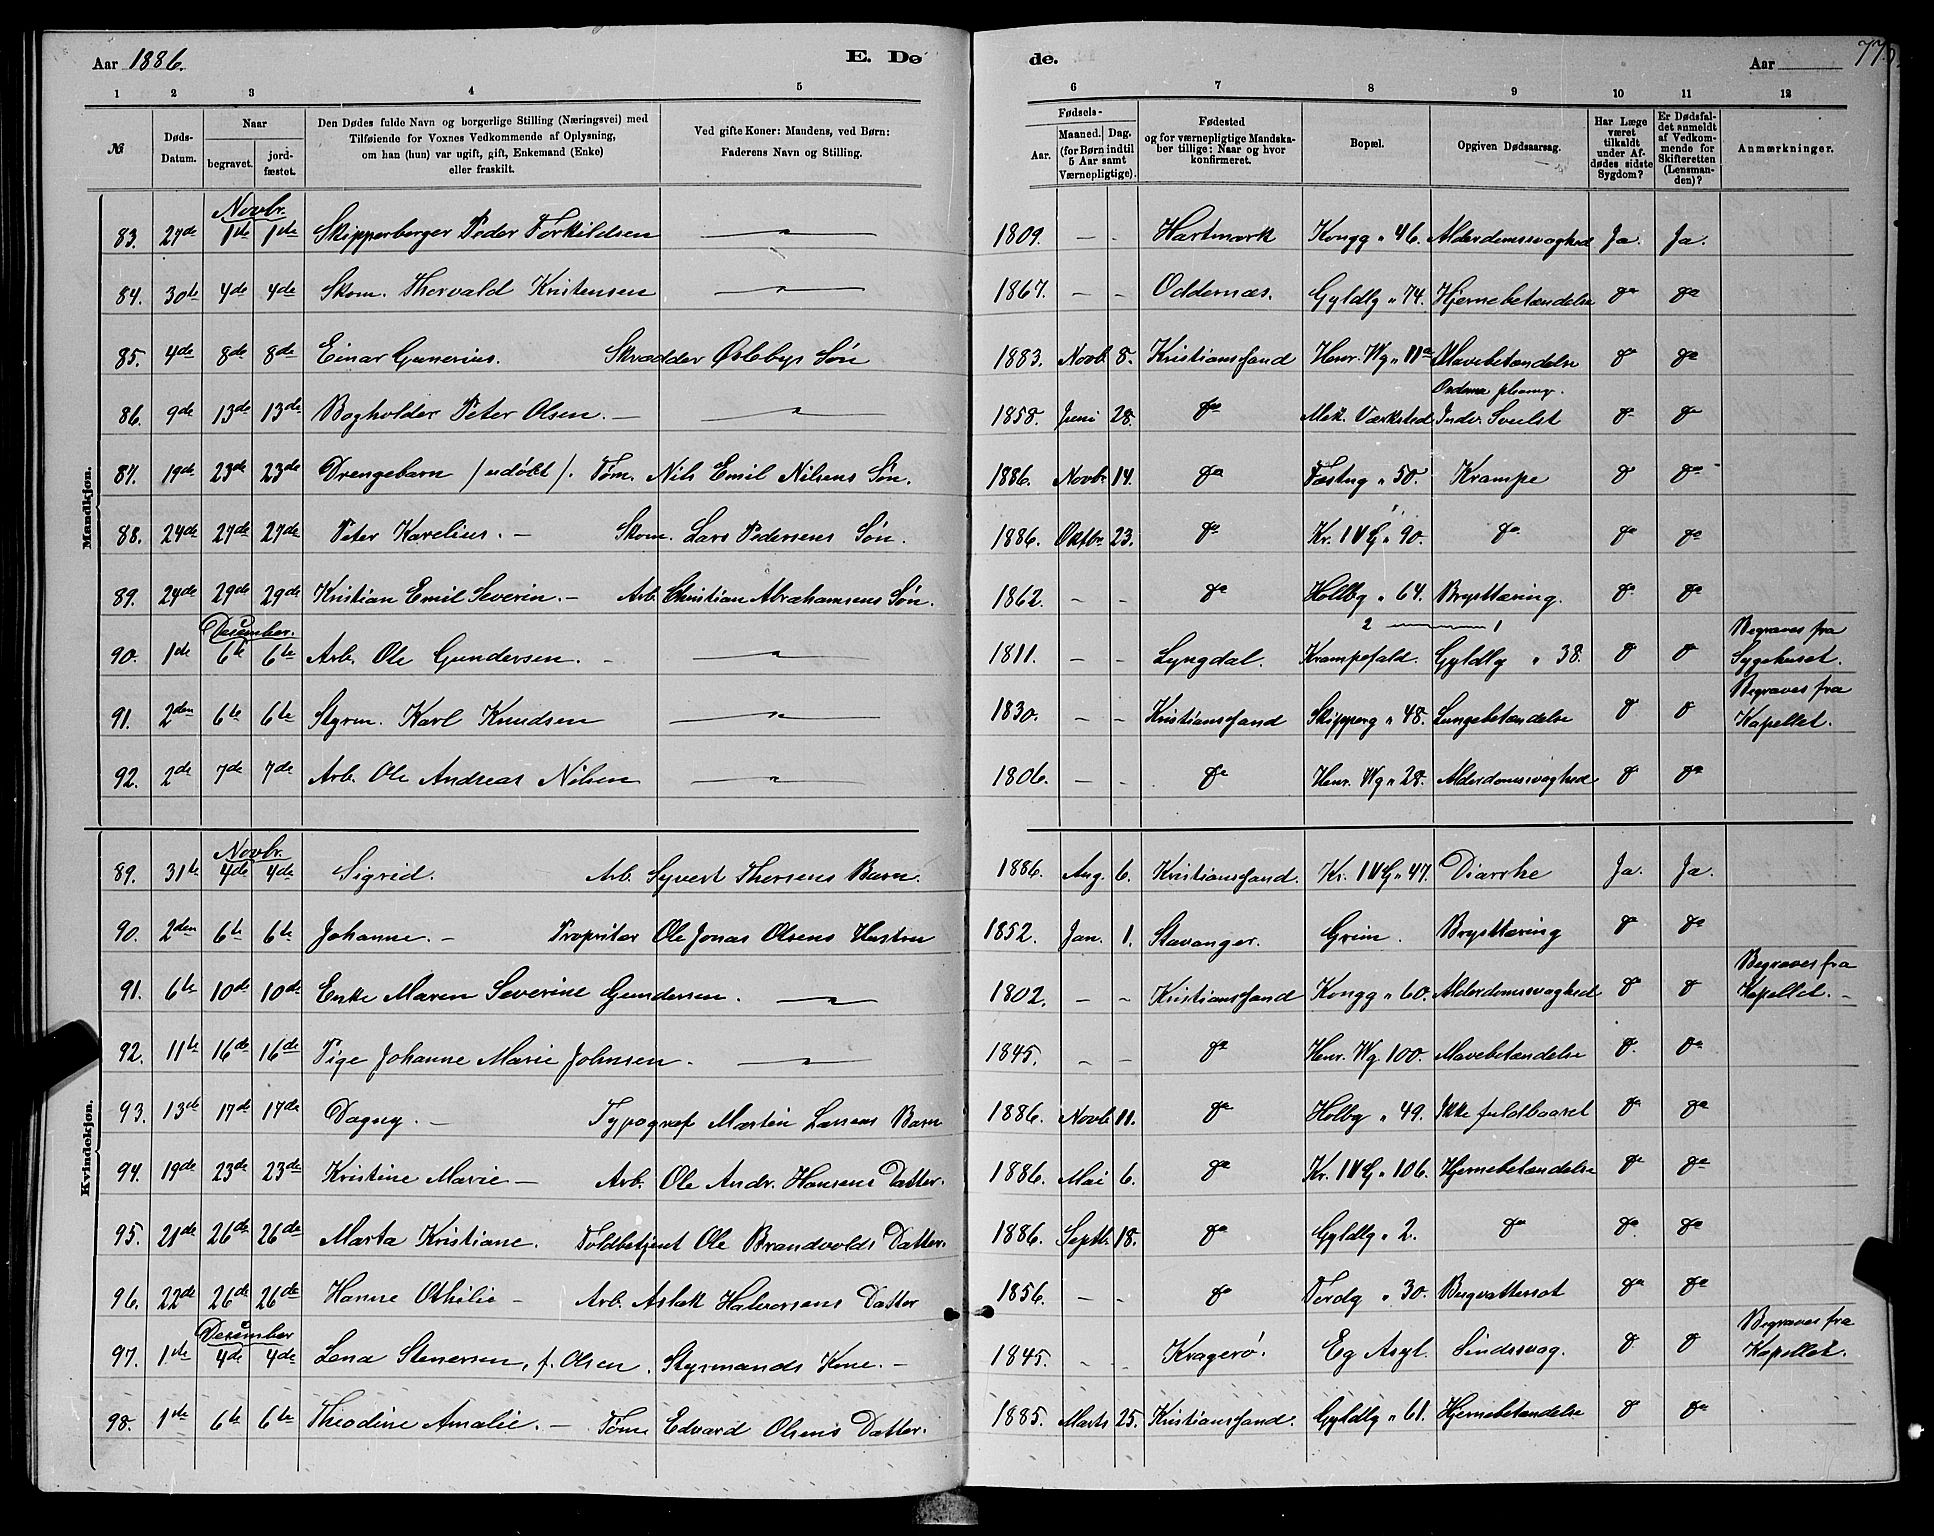 Aar 1886. E. Dø de. Aar 77.
1 2 3 4 5 6 7 8 9 10 11 12
№ Døds-Datum. Naar begravet. jordfæstet. Den Dødes fulde Navn og borgerlige Stilling (Næringsvei) med Tilføiende for Voxnes Vedkommende af Oplysning, om han (hun) var ugift, gift, Enkemand (Enke) eller fraskilt. Ved gifte Koner: Mandens, ved Børn: Faderens Navn og Stilling. Fødsels- Aar. Maaned. Dag. (for Børn indtil 5 Aar samt Værnepligtige). Fødested og for værnepligtige Mandskaber tillige: Naar og hvor konfirmeret. Bopæl. Opgiven Dødsaarsag. Har Læge været tilkaldt under Afdødes sidste Sygdom? Er Dødsfaldet anmeldt af Vedkommende for Skifteretten (Lensmanden)? Anmærkninger.
Mandkjøn.
Novbr.
83. 27de 1ste 1ste Skipperborger Peder Torkildsen 1809. - - Hartmark Kongg " 46. Alderdomssvaghed Ja. Ja.
84. 30te 4de 4de Skom. Thorvald Kristensen 1867. - - Oddernæs. Gyldlg " 74. Hjernebetændelse do do
85. 4de 8de 8de Einar Gunerius. Skrædder Øslebys Søn 1883. Novb. 8. Kristianssand Henr. Wg " 11a Mavebetændelse do do
86. 9de 13de 13de Bogholder Peter Olsen. - 1858. Juni 28. do Mek. Værksted Indv. Svulst do do
87. 19de 23de 23de Drengebarn / udøbt /. Tøm. Nils Emil Nilsens Søn. 1886. Novbr 14. do Fæstng " 50. Krampe do do
88. 24de 27de 27de Peter Karelius. - Skom. Lars Pedersens Søn. 1886. Oktbr. 23. do Kr. IV G " 90. do do do
89. 24de 29de 29de Kristian Emil Severin. - Arb. Christian Abrahamsens Søn. 1862. - - do Holbg " 64. Brysttæring. do do
Desember.
2 1
90. 1de 6te 6te Arb. Ole Gundersen. - 1811. - - Lyngdal. Krampefald. Gyldlg " 38. do do Begraves fra Sygehuset.
91. 2den 6te 6te Styrm. Karl Knudsen 1830. - - Kristianssand Skipperg " 48. Lungebetændelse do do Begraves fra Kapellet.
92. 2de 7de 7de Arb. Ole Andreas Nilsen 1806. - - do Henr. Wg " 28. Alderdomssvaghed do do
Kvindekjøn.
Novbr.
89. 31te 4de 4de Sigrid. Arb. Syvert Thorsens Barn. 1886. Aug. 6. Kristianssand. Kr. IV G " 47. Diarrhe Ja. Ja.
90. 2den 6te 6te Johanne. - Propritær Ole Jonas Olsens Hustru 1852. Jan. 1. Stavanger. Grim. Brysttæring do do
91. 6te 10de 10de Enke Maren Severine Gundersen. 1802. - - Kristianssand Kongg " 60. Alderdomssvaghed do do Begraves fra Kapellet. -
92. 11te 16de 16de Pige Johanne Marie Johnsen. 1845. - - do Henr. Wg 100. Mavebetændelse do do
93. 13de 17de 17de Dagny. - Typograf Martin Larsens Barn 1886. Novb. 11. do Holbg " 49. Ikke fuldbaaret do do
94. 19de 23de 23de Kristine Marie - Arb. Ole Andr. Hansens Datter. 1886. Mai 6. do Kr. IV G " 106. Hjernebetændelse do do
95. 21de 26de 26de Marta Kristiane. Toldbetjent Ole Brandvolds Datter. 1886. Septb. 18. do Gyldlg " 2. do do do
96. 22de 26de 26de Hanne Othilie - Arb. Aslak Halvorsens Datter 1856. - - do Tordg " 30. Bugvattersot do do
Desember
97. 1ste 4de 4de Lena Stenersen, f. Olsen. Styrmands Kone. - 1845. - - Kragerø. Eg Asyl. Sindssvag. do do Begraves fra Kapellet.
98. 1ste 6te 6te Theodine Amalie. - Tøm. Edvard Olsens Datter. 1885. Marts 25. Kristianssand. Gyldlg " 61. Hjernebetændelse do do